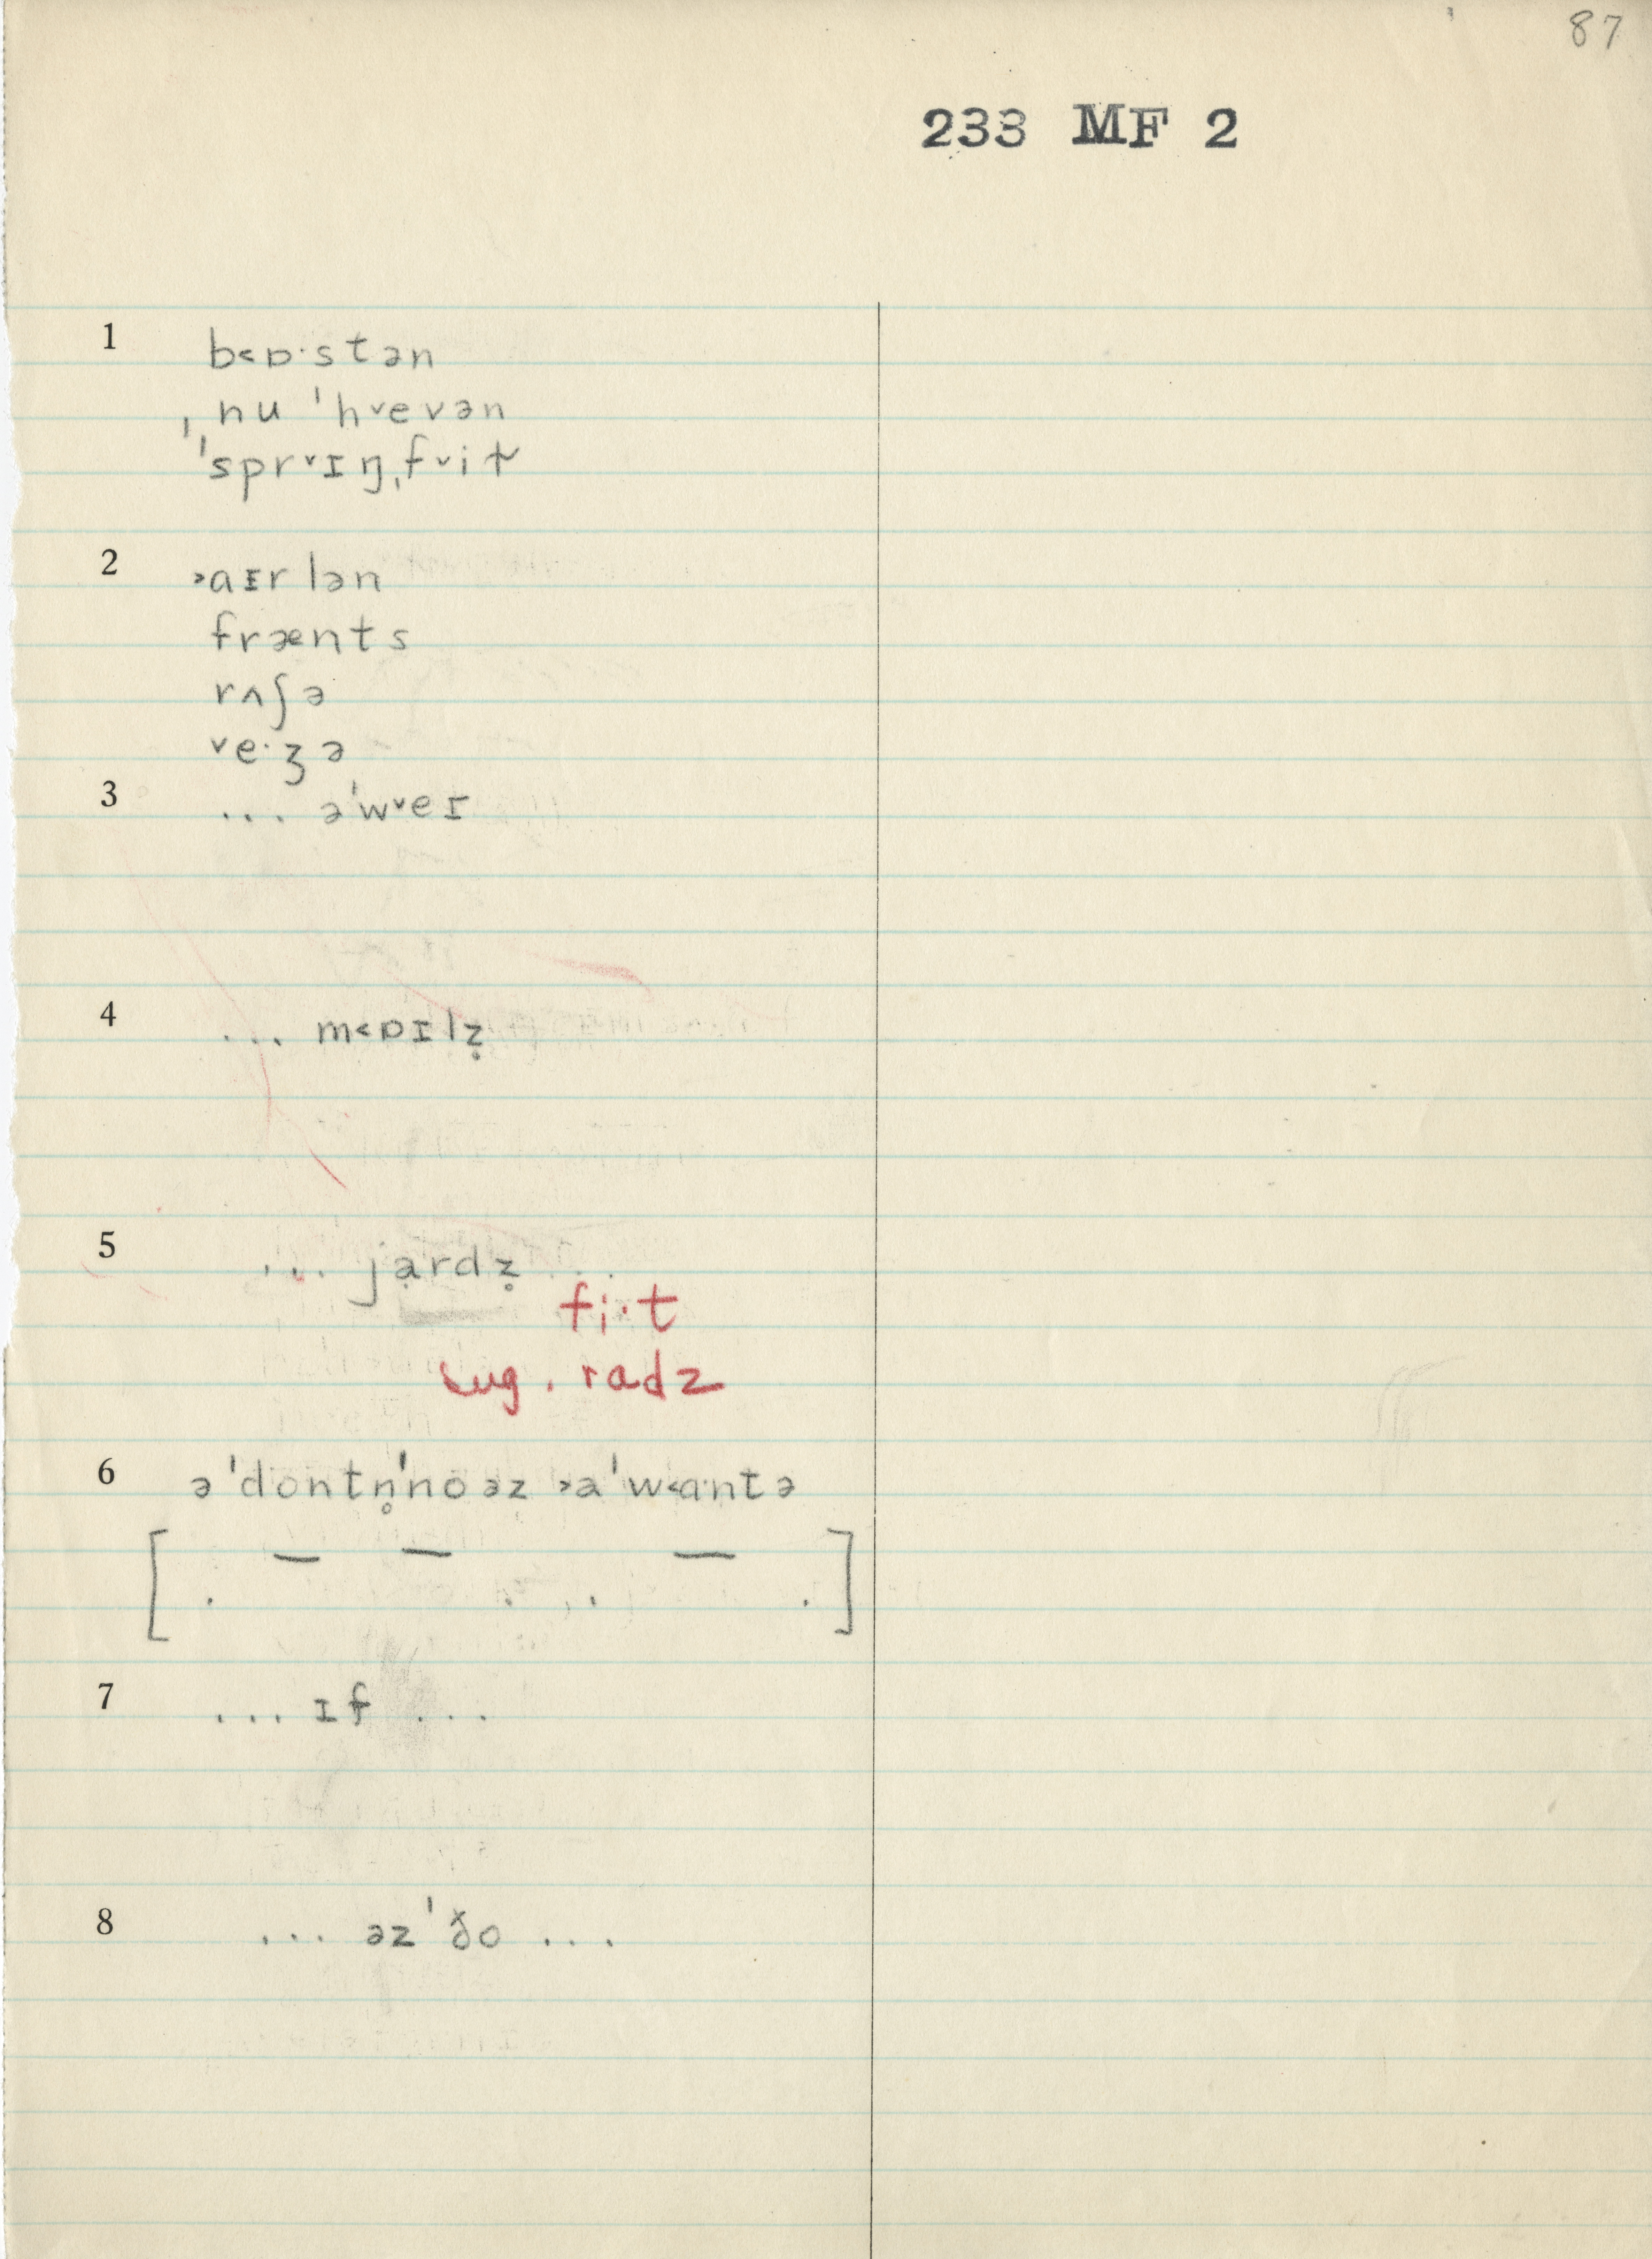 87
233 MF 2
1 b˂ɒ·stən
ˌnu ˈh˅evən
ˈˈspr˅ɪŋˌf˅it
2 ˃aɪrlən
frænts
rʌʃə
˅e·ʒə
3 ... əˈw˅eɪ
4 ... m˂ɒɪlz̥
5 ... jạrdz̥ ...
fi̞·t
sug. radz
6 əˈdontn̥ˈnoəz ˃aˈw˂ɑntə
[ . — — . . — . ]
7 ... ɪf ...
8 ... əzˈðo ...